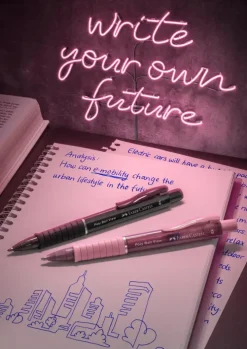 write
your own
future
Analysis:
How can e-mobility change the
urban lifestyle in the futu
Electric cars will have a
FABER-CASTELL
FABER-CASTELL